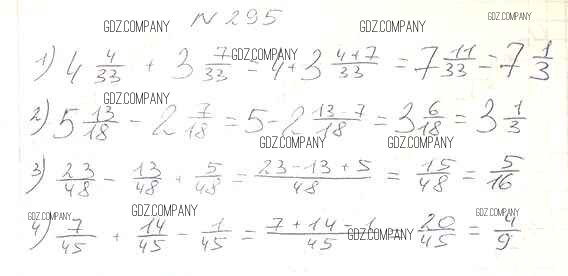 N 295
GDZ.COMPANY GDZ.COMPANY GDZ.COMPANY
1) 4 4/33 + 3 7/33 = 4+3 4+7/33 = 7 11/33 = 7 1/3
GDZ.COMPANY
GDZ.COMPANY
2) 5 13/18 - 2 7/18 = 5-2 13 7/18 = 3 6/18 = 3 1/3
GDZ.COMPANY GDZ.COMPANY
3) 23/48 - 13/48 + 5/48 = 23-13+5/48 = 15/48 = 5/16
GDZ.COMPANY GDZ.COMPANY GDZ.COMPANY
4) 7/45 + 14/45 - 1/45 = 7+14-1/45 20/45 = 4/9
GDZ.COMPANY